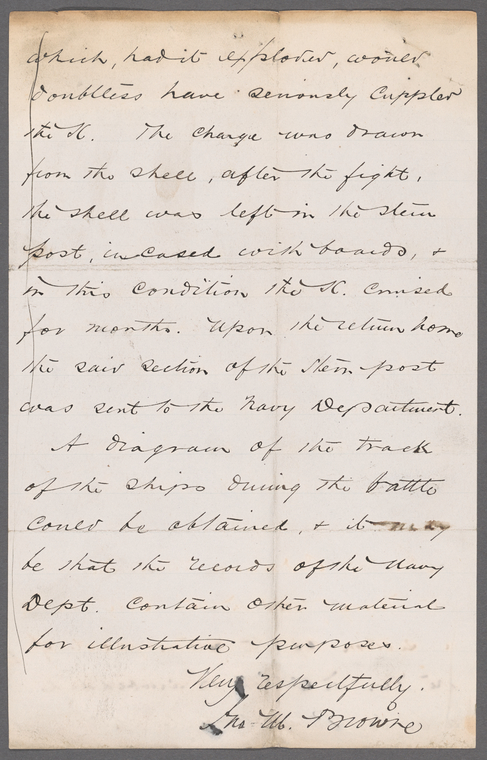 which, had it exploded, would
doubtless have seriously crippled
the K. The charge was drawn
from the shell, after the fight,
the shell was left in the stern
post, incased with boards, &
in this condition the K. cruised
for months. Upon the return home
the said section of the Stern post
was sent to the Navy Department.
A diagram of the track
of the ships during the battle
could be obtained, & it may
be that the records of the Navy
Dept. contain other material
for illustrative purposes.
Very respectfully.
Jno. M. Browne